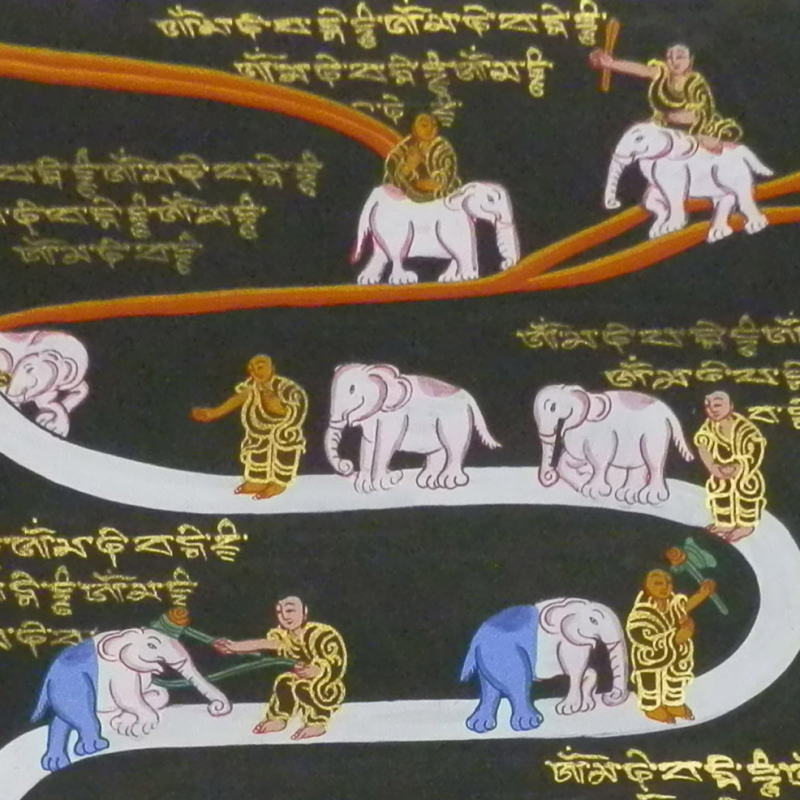 ཨོཾ་མ་ཎི་པ་དྨེ་ཧཱུྃ་ཨོཾ་མ་ཎི་པ་དྨེ་ཧཱུྃ
ཨོཾ་མ་ཎི་པ་དྨེ་ཧཱུྃ་ཨོཾ་མ་ཧཱུྃ
པ་དྨེ་ཧཱུྃ་ཨོཾ་མ་ཎི་པ་དྨེ་ཧཱུྃ
ཎི་པ་དྨེ་ཧཱུྃ་ཨོཾ་མ་ཧཱུྃ
ཨོཾ་མ་ཎི་པ་ཧཱུྃ
ཨོཾ་མ་ཎི་པ་དྨེ་ཧཱུྃ་ཨོཾ
ཨོཾ་མ་ཎི་པ་དྨེ
ཨོཾ་མ་ཎི་པ་དྨེ་ཧཱུྃ
དྨེ་ཧཱུྃ་ཨོཾ་མ་ཧཱུྃ
ཎི་པ
ཨོཾ་མ་ཎི་པ་དྨེ་ཧཱུྃ